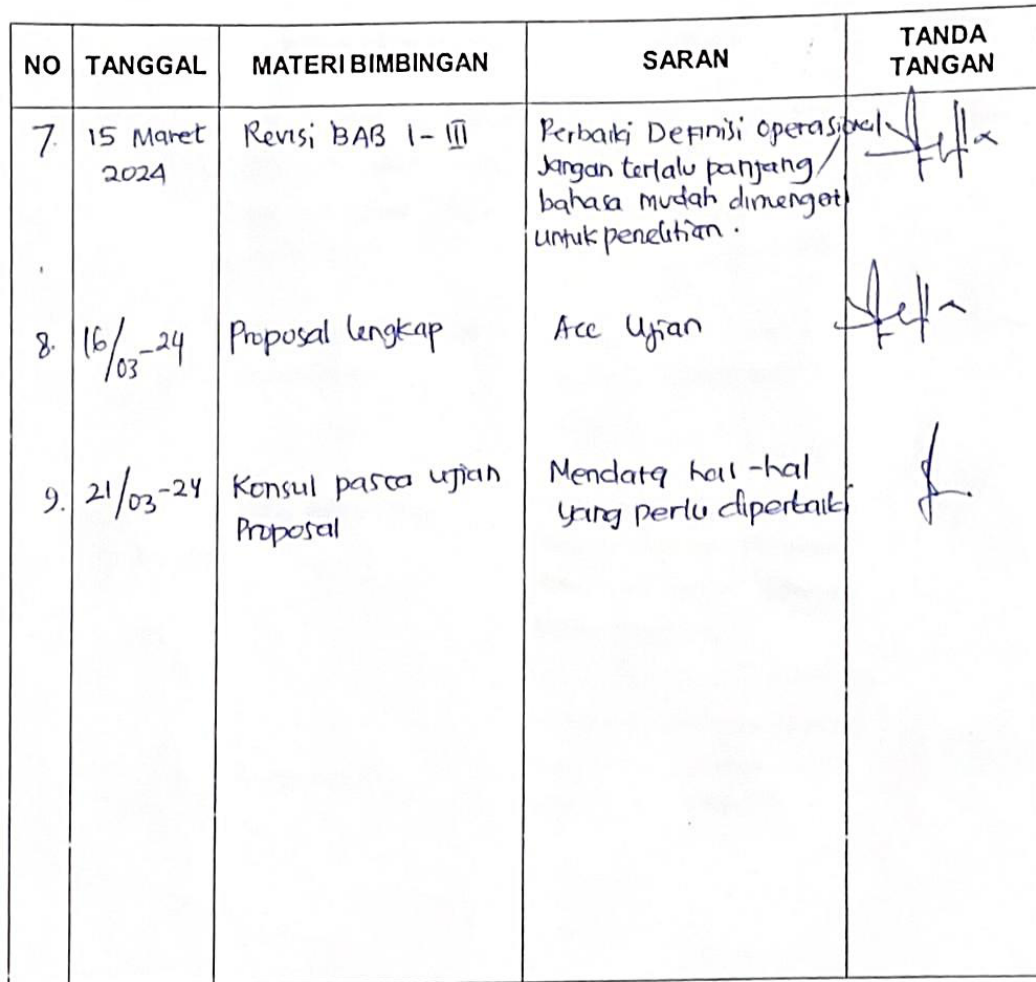 NO TANGGAL MATERI BIMBINGAN SARAN TANDA TANGAN
7. 15 Maret 2024 Revisi BAB I - III Perbaiki Definisi operasional
Jangan terlalu panjang /
bahasa mudah dimengerti
untuk penelitian.
8. 16/03-24 Proposal lengkap Acc Ujian
9. 21/03-24 Konsul pasca ujian Proposal Mendata hal-hal
yang perlu diperbaiki